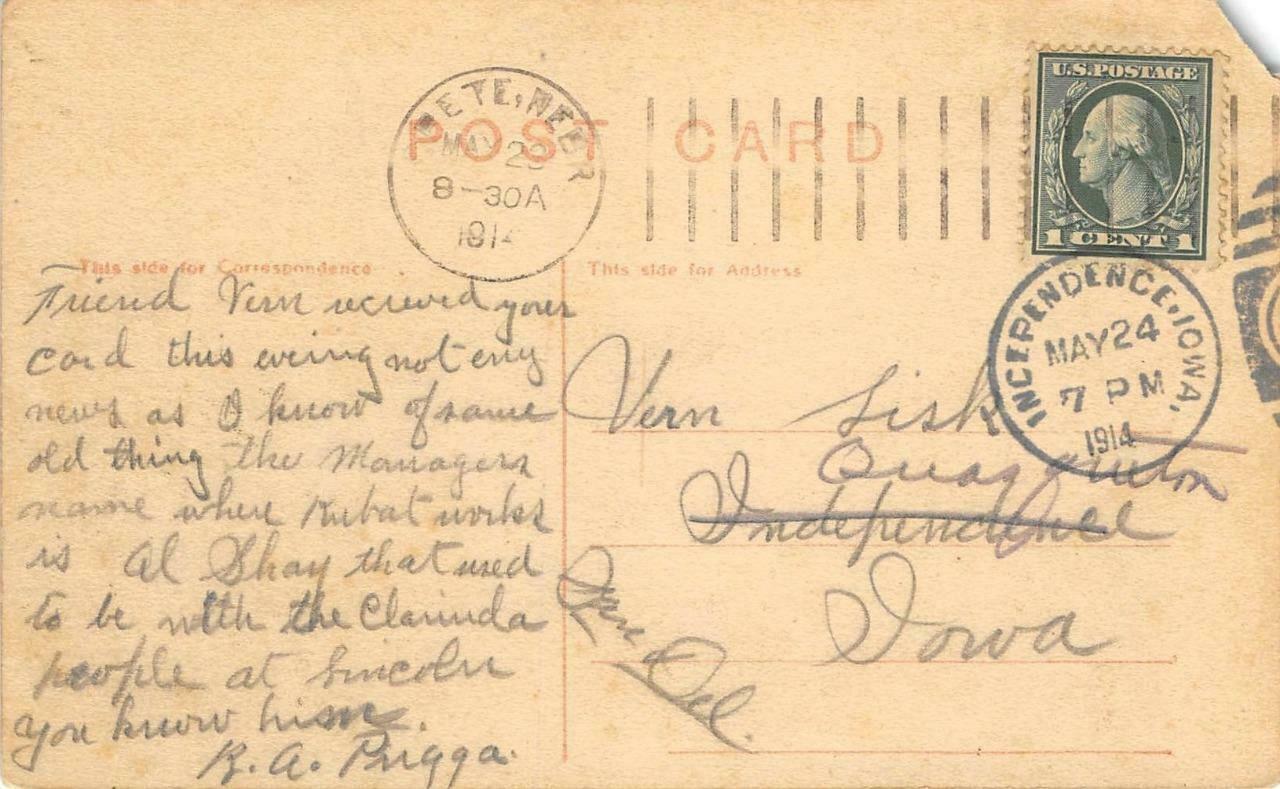 POST CARD
U.S. POSTAGE
1 CENT 1
CRETE, NEBR
MAY 23
8-30A
1914
INDEPENDENCE, IOWA.
MAY 24
7 PM
1914
This side for Correspondence
This side for Address
Friend Vern recieved your
card this evening not eny
news as I know of same
old thing the Managers
name where Kubat works
is Al Shay that used
to be with the Clarinda
people at Lincoln
you know him.
R. A.
Vern Sisk
Quasqueton
Independence
Iowa
Gen Del.